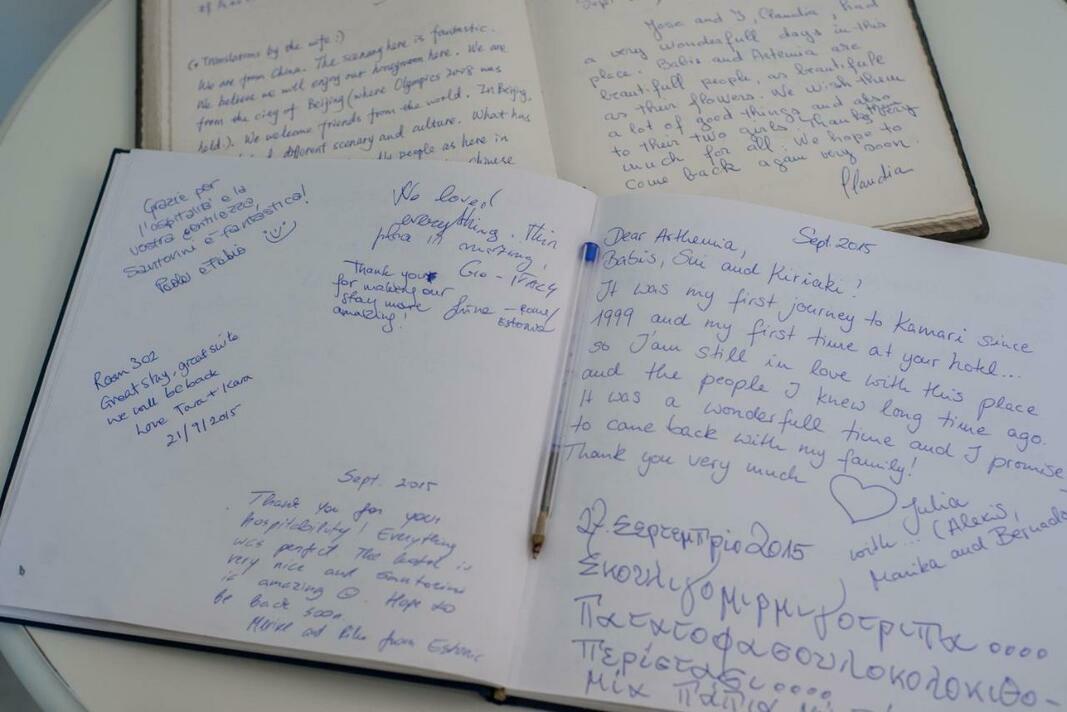 (*Translations by the wife :)
We are from China. The scenary here is fantastic.
We believe we will enjoy our honeymoon here. We are
from the city of Beijing (where Olympics 2008 was
hold.). We welcome friends from the world. In Beijing,
different scenary and culture. What has
people as here in
chinese
Jose and I, Claudia, had
a very wonderfull days in this
place. Babis and Artemia are
beautifull people, as beautifull
as their flowers. We wish them
a lot of good things and also
to their two girls. Thanks very
much for all. We hope to
come back again very soon.
Claudia
Grazie per
l'ospitalità e la
vostra gentilezza,
Santorini è fantastica!
Paola e Fabio
We loved
everything. This
place is amazing!
Thank you
for making our
stay more
amazing!
Estonia
Room 302
Great stay, great suite
we will be back
Love Tara + Kara
21/9/2015
Sept. 2015
Thank you for your
hospitability! Everything
was perfect. The hotel is
very nice and Santorini
is amazing ☺. Hope to
be back soon.
from Estonia
Sept. 2015
Dear Arthemia,
Babis, Sui and Kiriaki!
It was my first journey to Kamari since
1999 and my first time at your hotel...
so I'am still in love with this place
and the people I knew long time ago.
It was a wonderfull time and I promise
to come back with my family!
Thank you very much
Julia
with... (Alexis,
Marika and Bernado
27 Σεπτεμπριο 2015
Σκουλιγομιρμιγοτριπα ....
Πατατοφασουλοκολοκιθο-
Περίσταση ....
Μια Παπια